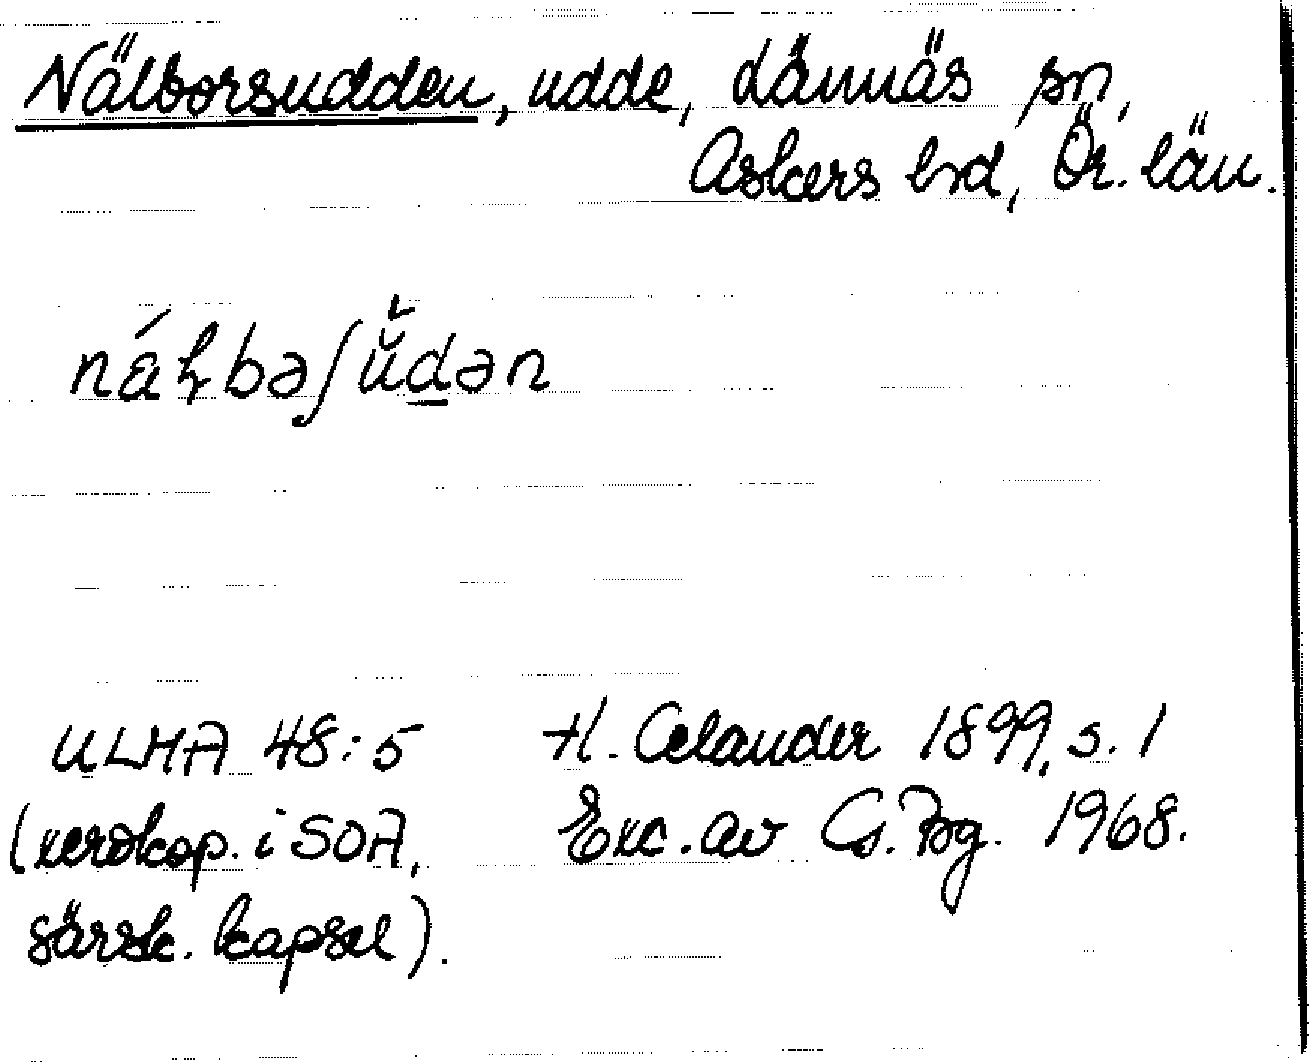 Nälborsudden, udde, Lännäs sn,
Askers hrd, Ör. län.
ná̈ɫbəʃŭ̀dən
ULMA 48:5 H. Celander 1899, s. 1
(xerokop. i SOA, Exc. av G. Bg. 1968.
särsk. kapsel).